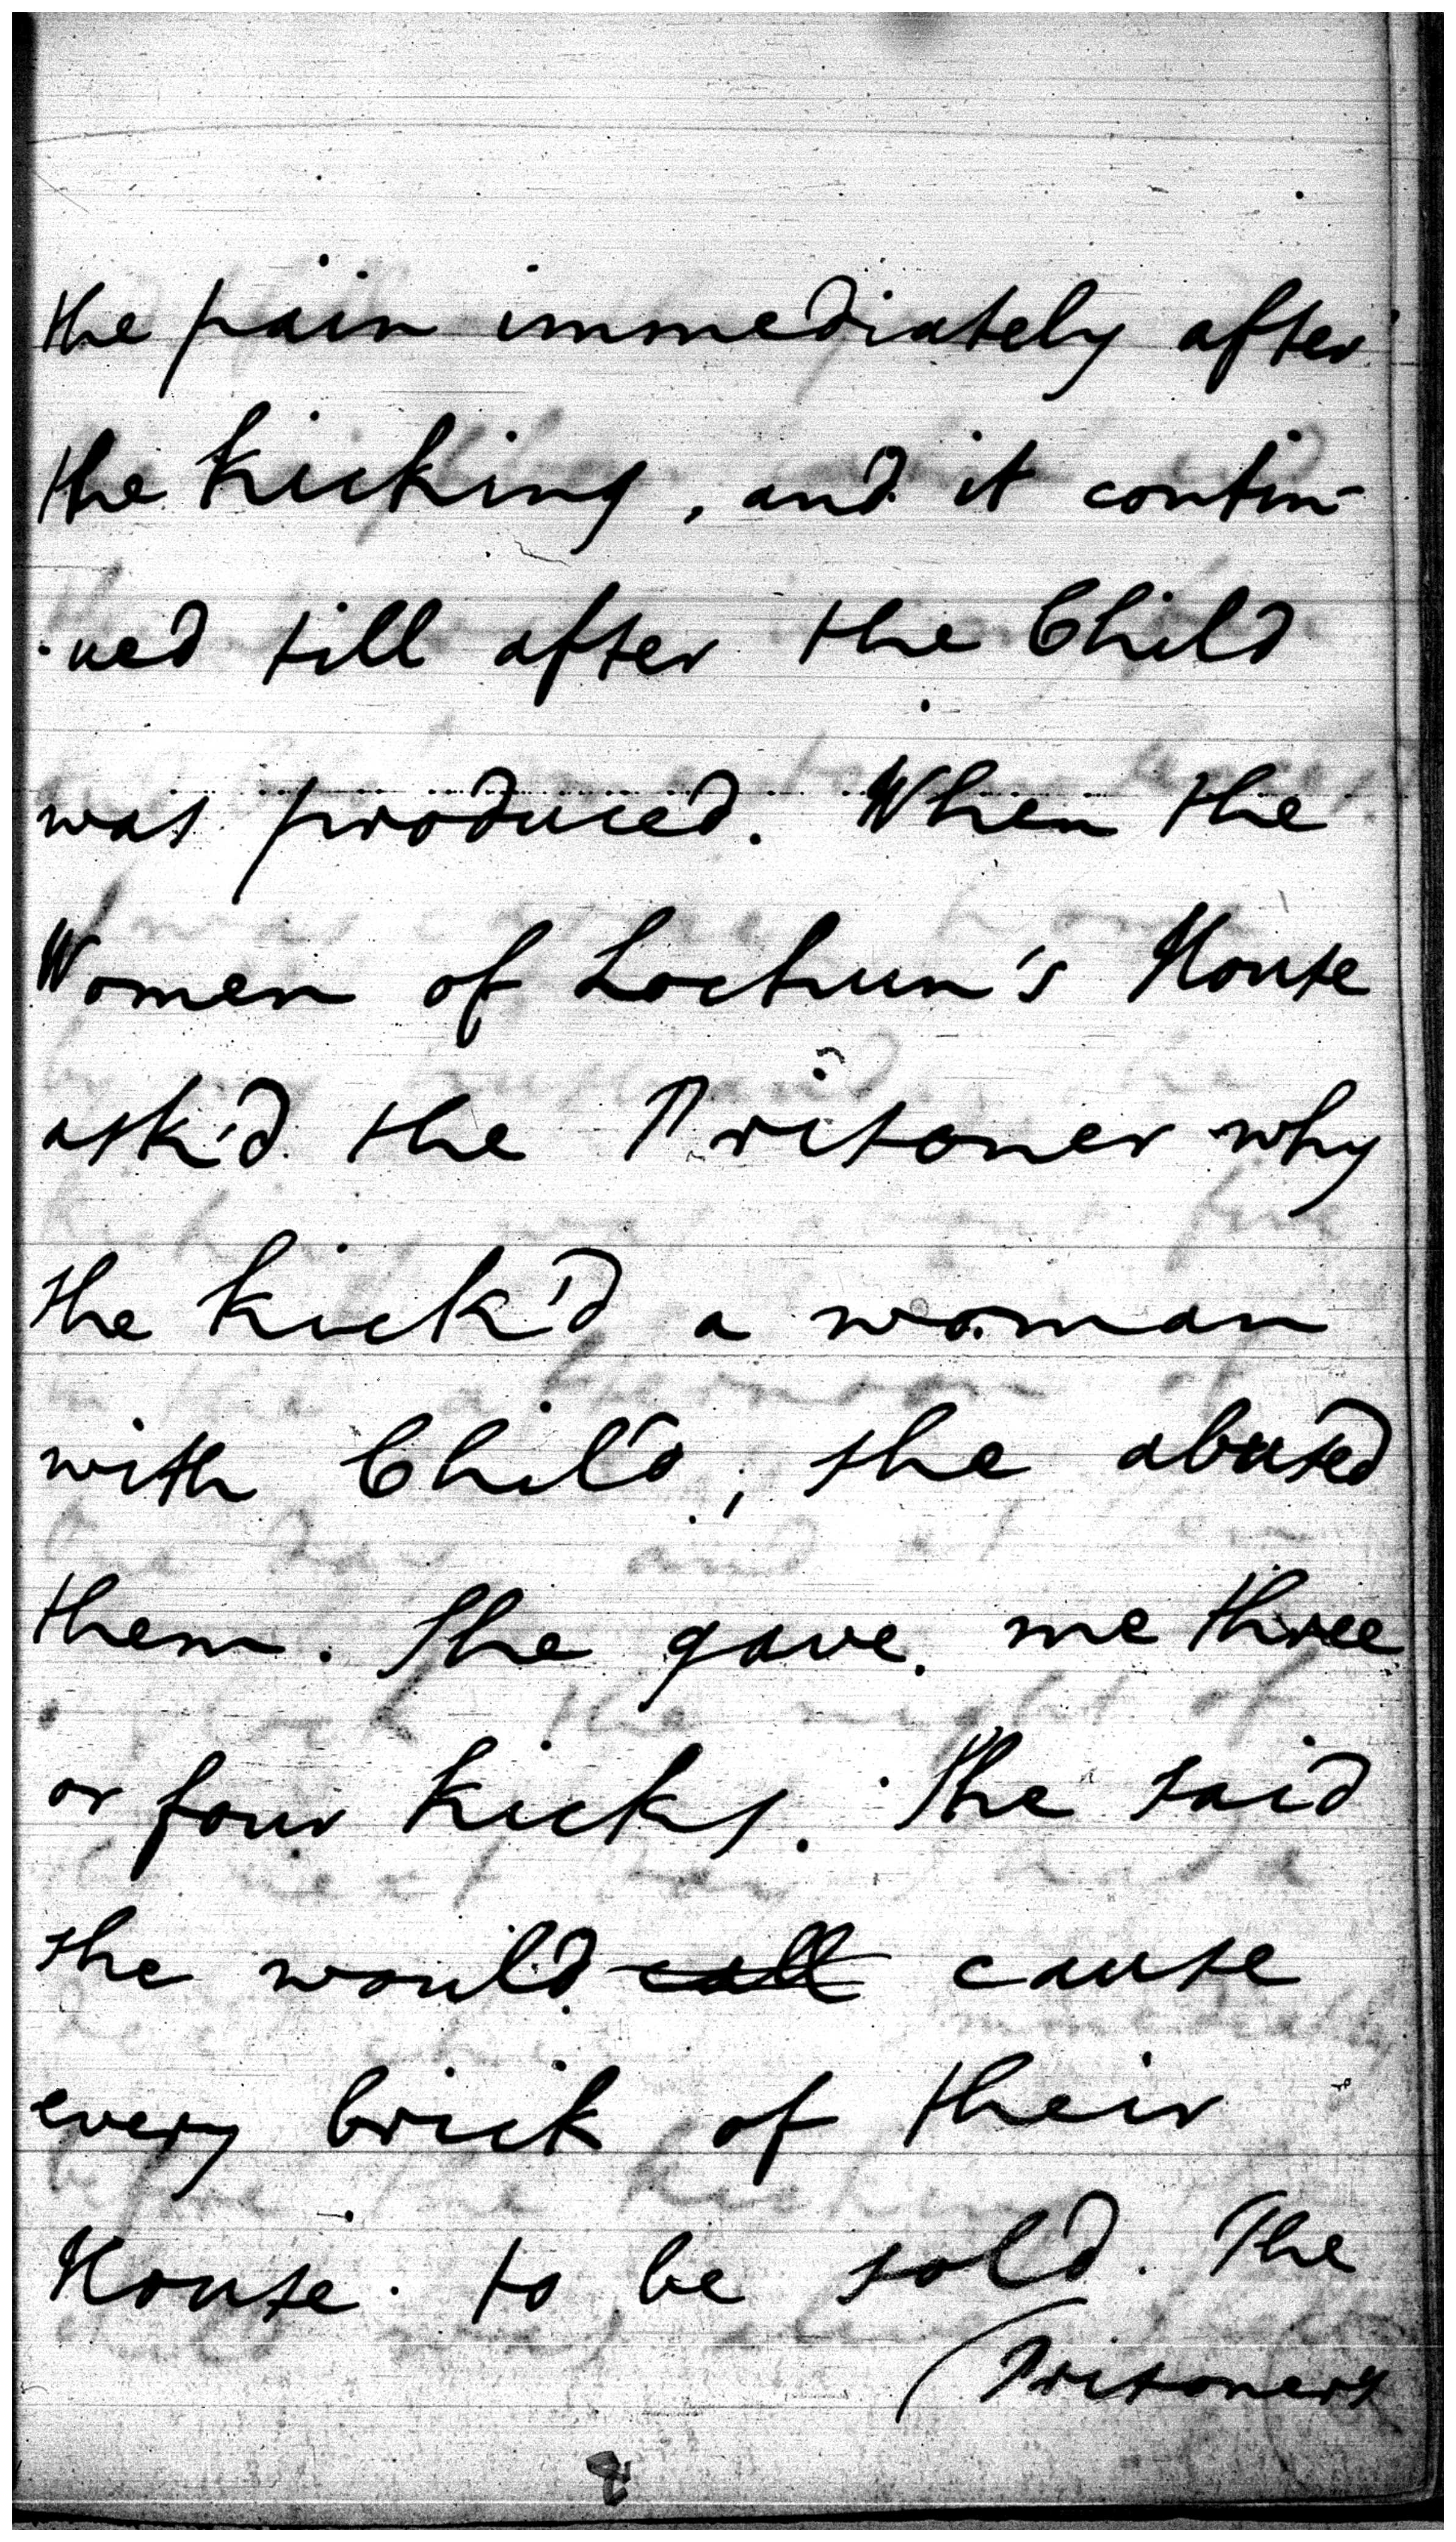 the pain immediately after
the kicking, and it contin-
-ued till after the Child
was produced. When the
Women of Lochun's House
ask'd the Prisoner why
she kick'd a woman
with Child; she abused
them. She gave me three
or four kicks. She said
she would ~~call~~ cause
every brick of their
House to be sold. The
(Prisoners
8